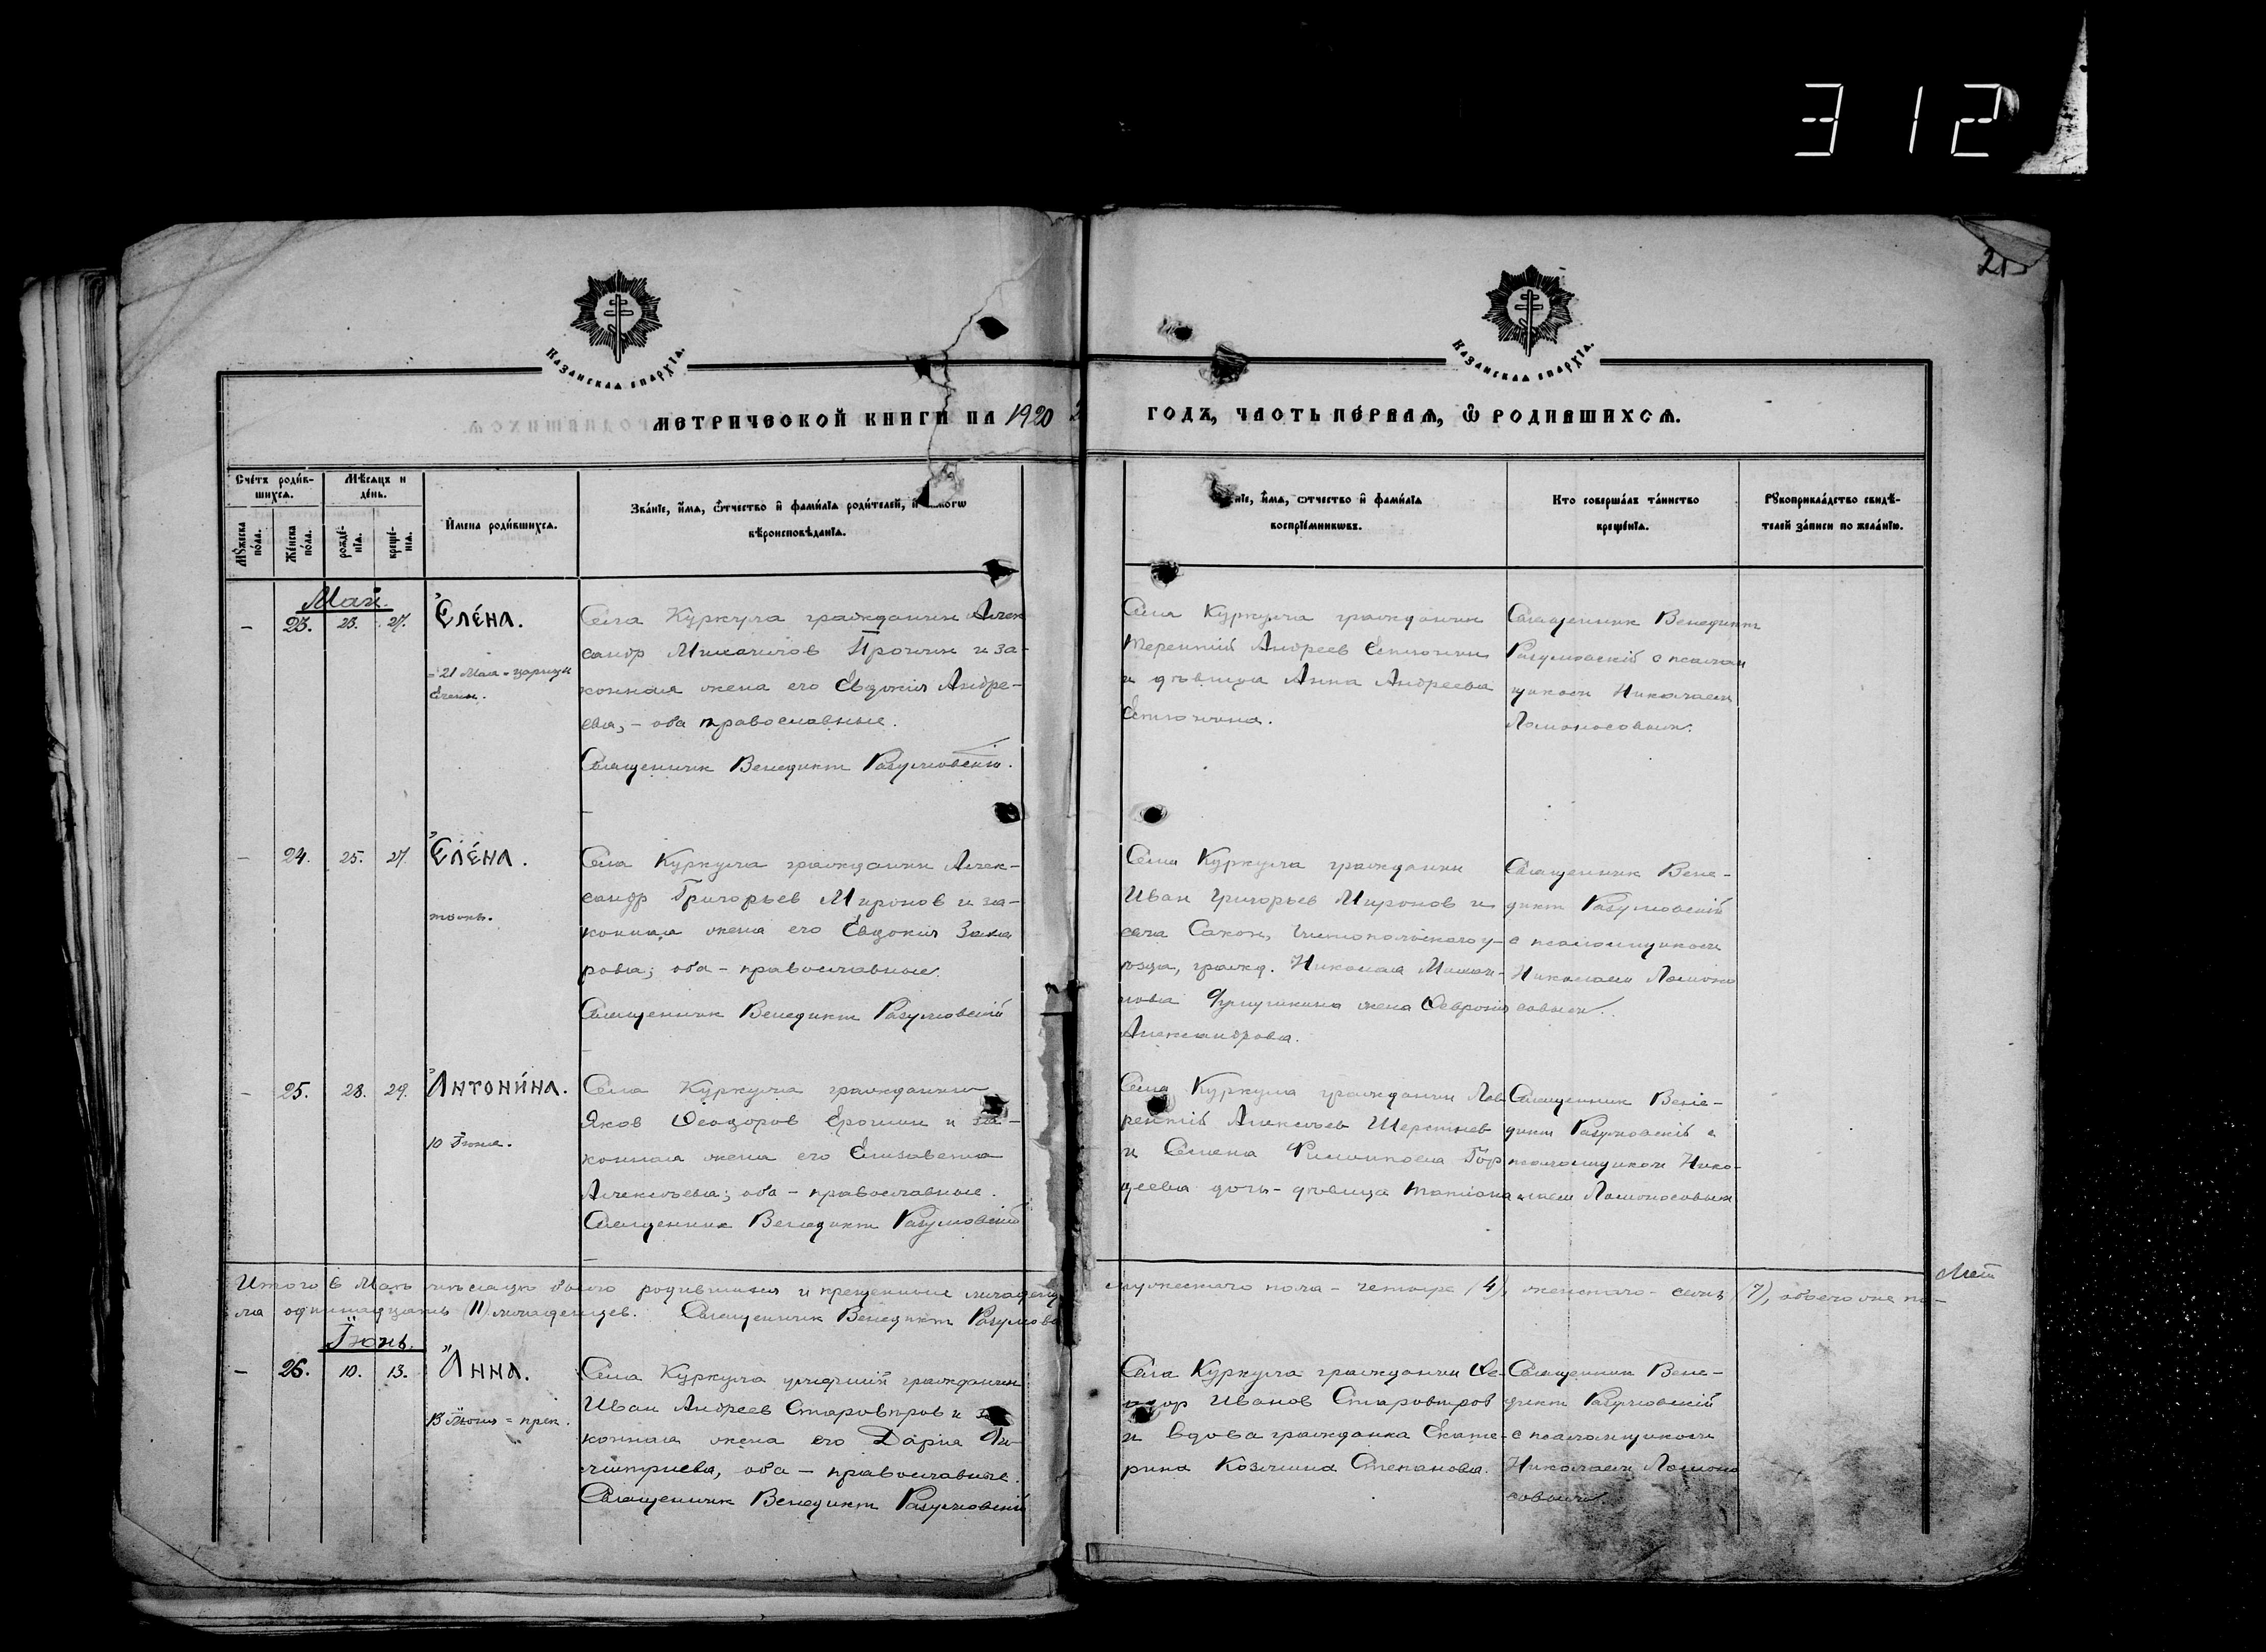 312
21
Казанская епархїа.
Казанская епархїа.
МЕТРИЧЕСКОЙ КНИГИ НА 1920
ГОДЪ, ЧАСТЬ ПЕРВАѦ, Ѿ РОДИВШИХСѦ.
Счетъ родившихсѧ.
Мѣсяцъ и день.
Имена родившихсѧ.
Званїе, имѧ, ѿтчество и фамилїа родителей, и
вѣроисповѣданїѧ.
Мужеска пола.
Женска пола.
рождєнїѧ.
крещенїѧ.
имѧ, отчество и фамилїѧ
воспрїемниковъ.
Кто совершалъ таинство
крещенїѧ.
Рукоприкладство свидѣ-
телей записи по желанїю.
Май.
– 23. 23. 27. Елéна.
= 21 Мая = царицы
Елены.
Села Куркула гражданин Алек
сандр Михаилов Пронин и за-
конная жена его Евдокия Андре-
ева, – оба православные.
Священник Венедикт Разумовский.
Села Куркула гражданин
Терентий Андреев
и девица Анна Андреева
Священник Венедикт
Разумовскій с псалом
щиком Николаем
Ломоносовым.
– 24. 25. 27. Елéна.
тоже.
Села Куркула гражданин Алек-
сандр Григорьев Миронов и за-
конная жена его Евдокия Заха
рова; оба – православные.
Священник Венедикт Разумовскій
Села Куркула гражданин
Иван Григорьев Миронов и
села Сахон, Чистопольского у-
езда, гражд. Николая Михаи-
лова жена Феврония
Александрова.
Священник Вене-
дикт Разумовскій
с псаломщиком
Николаем Ломоно
совым.
– 25. 28. 29. Антони́на.
10 Іюня.
Села Куркула гражданин
Яков Феодоров Ерошин и за-
конная жена его Елизавета
Алексеева; оба – православные.
Священник Венедикт Разумовскій
Села Куркула гражданин Лав
рентій Алексеев Шерстнев
и Семена Филиппова Гор
деева дочь – девица Татіана
Священник Вене-
дикт Разумовскій с
псаломщиком Нико-
лаем Ломоносовым
Итого в Мае месяце было родившихся и крещенных младенц
мужескаго пола – четыре (4), женскаго – семь (7), обоего же по-
ла одиннадцать (11) младенцев. Священник Венедикт Разумовс
Іюнь.
– 26. 10. 13. Анна.
= преп.
Села Куркула умерший гражданин
Иван Андреев Старовтров и за
конная жена его Дарія Ди-
митриева, оба – православные.
Священник Венедикт Разумовскій
Села Куркула гражданин Фе-
одор Иванов Старовтров
и вдова гражданка Екате-
рина Козмина Степанова.
Священник Вене-
дикт Разумовскій
с псаломщиком
Николаем Ломоно
совым